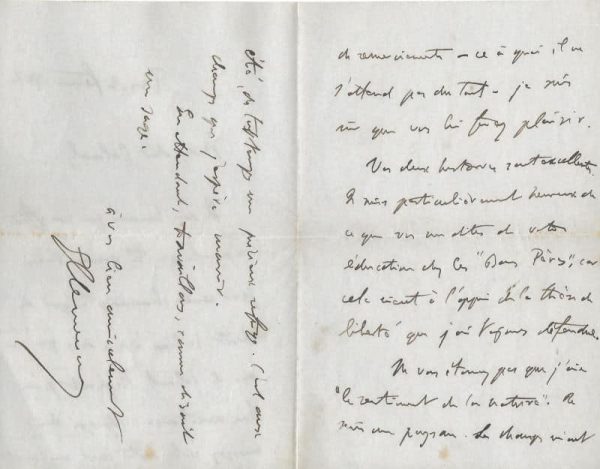 de remerciements – ce à quoi il ne
s'attend pas du tout – je suis
sûr que vous lui ferez plaisir.
Vos deux histoires sont excellentes.
Je suis particulièrement heureux de
ce que vous me dites de votre
éducation chez les "Bons Pères", car
cela vient à l'appui de la thèse de
liberté que j'ai toujours défendue.
Ne vous étonnez pas que j'aie
"le sentiment de la nature". Je
suis un paysan. Les champs m'ont
été, de tout temps un précieux refuge. C'est aux
champs que j'espère mourir.
En attendant, travaillons, comme disait
un sage.
à vous bien amicalement